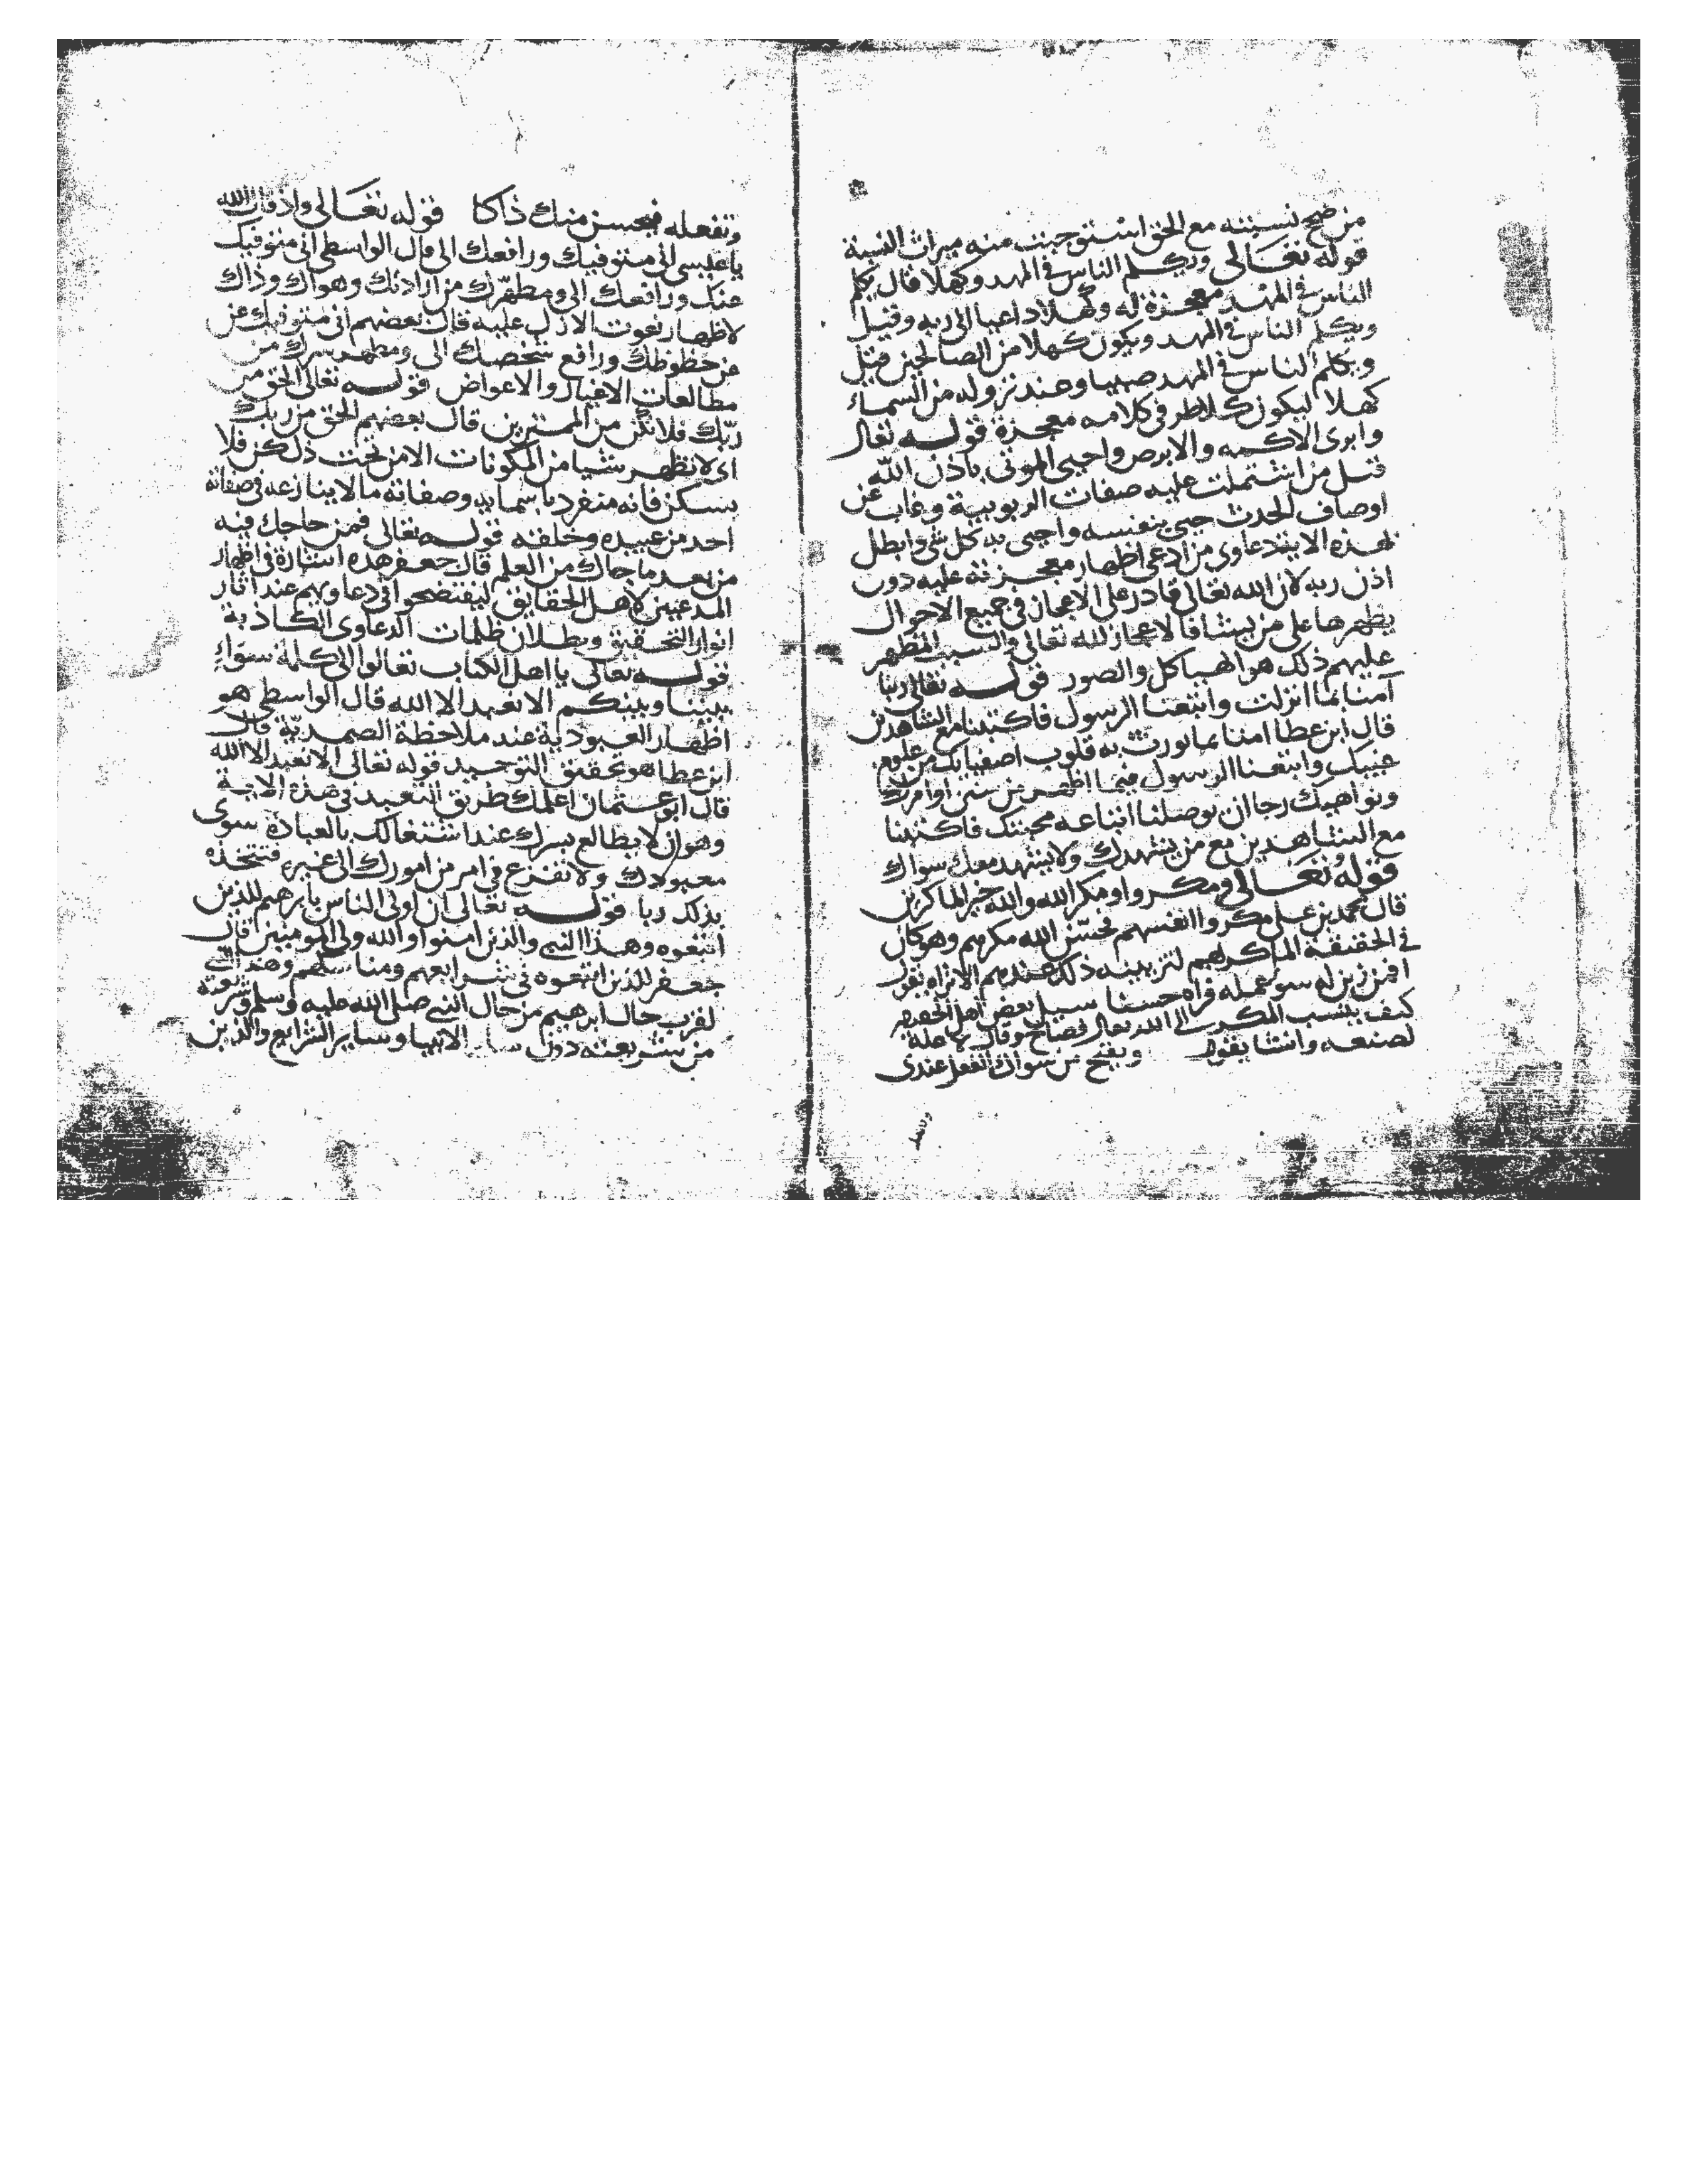 من صح نسبته مع الحق استوجبت منه ميراث النسبة
قوله تعالى ويكلم الناس في المهد وكهلا قال يكلم
الناس في المهد معجزة له وكهلا داعيا الى ربه وقيل
ويكلم الناس في المهد ويكون كهلا من الصالحين قيل
ويكلم الناس في المهد صبيا وعند نزوله من السماء
كهلا ليكون كلا طر في كلامه معجزة قوله تعالى
وابرى الاكمه والابرص واحيى الموتى باذن الله
قيل من اشتملت عليه صفات الربوبية وغاب عن
اوصاف الحدث حيى بنفسه واحيى به كل شي وابطل
لهذه الاية دعاوى من ادعى اظهار معجزته عليه دون
اذن ربه لان الله تعالى قادر على الاعجاز في جميع الاحوال
يظهرها على من يشا فالاعجاز لله تعالى والسبب المظهر
عليهم ذلك هو الهياكل والصور قوله تعالى ربنا
آمنا بما انزلت واتبعنا الرسول فاكتبنا مع الشاهدين
قال ابن عطا امنا بما نورت به قلوب اصفيايك من علوم
غيبك واتبعنا الرسول فيما اظهر من سنن اوامرك
ونواهيك رجا ان توصلنا اتباعه محبتك فاكتبنا
مع الشاهدين مع من يشهدك ولا يشهد معك سواك
قوله تعالى ومكروا ومكر الله والله خير الماكرين
قال محمد بن علي مكروا انفسهم فحسن الله مكرهم وهو كان
في الحقيقة الماكر لهم لتزيينه ذلك عندهم الا تراه يقول
افمن زين له سوء عمله فراه حسنا سيل بعض اهل الحقيقه
كيف ينسب المكر الى الله تعالى فصاح وقال لا علة
لصنعه وانشا يقول ويقبح من سواك الفعل عندي
وتفعله
وتفعله فيحسن منك ذاكا قوله تعالى واذ قال الله
يا عيسى اني متوفيك ورافعك الى قال الواسطي اني متوفيك
عنك ورافعك الى ومطهرك من ارادتك وهواك وذاك
لاظهار نعوت الازل عليه قال بعضهم اني متوفيك عن
عن حظوظك ورافع شخصك الى ومطهر سرك من
مطالعات الاغيار والاعواض قوله تعالى الحق من
ربك فلا تكن من الممترين قال بعضهم الحق من ربك
اى لا تظهر شيا من المكونات الا من تحت ذل كن فلا
يسكن فانه منفرد باسمايه وصفاته ما لا ينازعه في صفاته
احد من عبيده وخلقه قوله تعالى فمن حاجك فيه
من بعد ما جاك من العلم قال جعفر هذه اشارة في اظهار
المدعين لاهل الحقايق ليفتضحوا في دعاويهم عند اثار
انوار التحقيق وبطلان ظلمات الدعاوى الكاذبة
قوله تعالى يا اهل الكتاب تعالوا الى كلمة سواء
بيننا وبينكم الا نعبد الا الله قال الواسطي هو
اظهار العبودية عند ملاحظة الصمدية قال
ابن عطا هو تحقيق التوحيد قوله تعالى الا نعبد الا الله
قال ابو عثمان اعلمك طريق التعبد في هذه الاية
وهو ان لا يطالع بسرك عند اشتغالك بالعبادة سوى
معبودك ولا تفزع في امر من امورك الى غيره فتتخذه
بذلك ربا قوله تعالى ان اولى الناس بابرهيم للذين
اتبعوه وهذا النبي والذين امنوا والله ولى المومنين قال
جعفر للذين اتبعوه في شرايعهم ومناسكهم وهذا النبي
لقرب حال ابرهيم من حال النبي صلى الله عليه وسلم وشريعته
من شريعته دون ساير الانبيا وساير الشرايع والذين